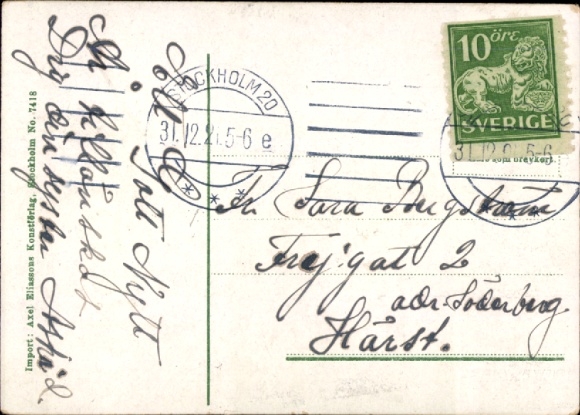 10 öre
SVERIGE
STOCKHOLM 20
31.12.2 .5-6 e
31.12. 5-6
som brevkort.
Gott Nytt
tillönskat
Dig din syster Astrid
Fr. Sara Bergström
Frejgat 2
adr Söderberg
Härst.
Import: Axel Eliassons Konstförlag, Stockholm No. 7418